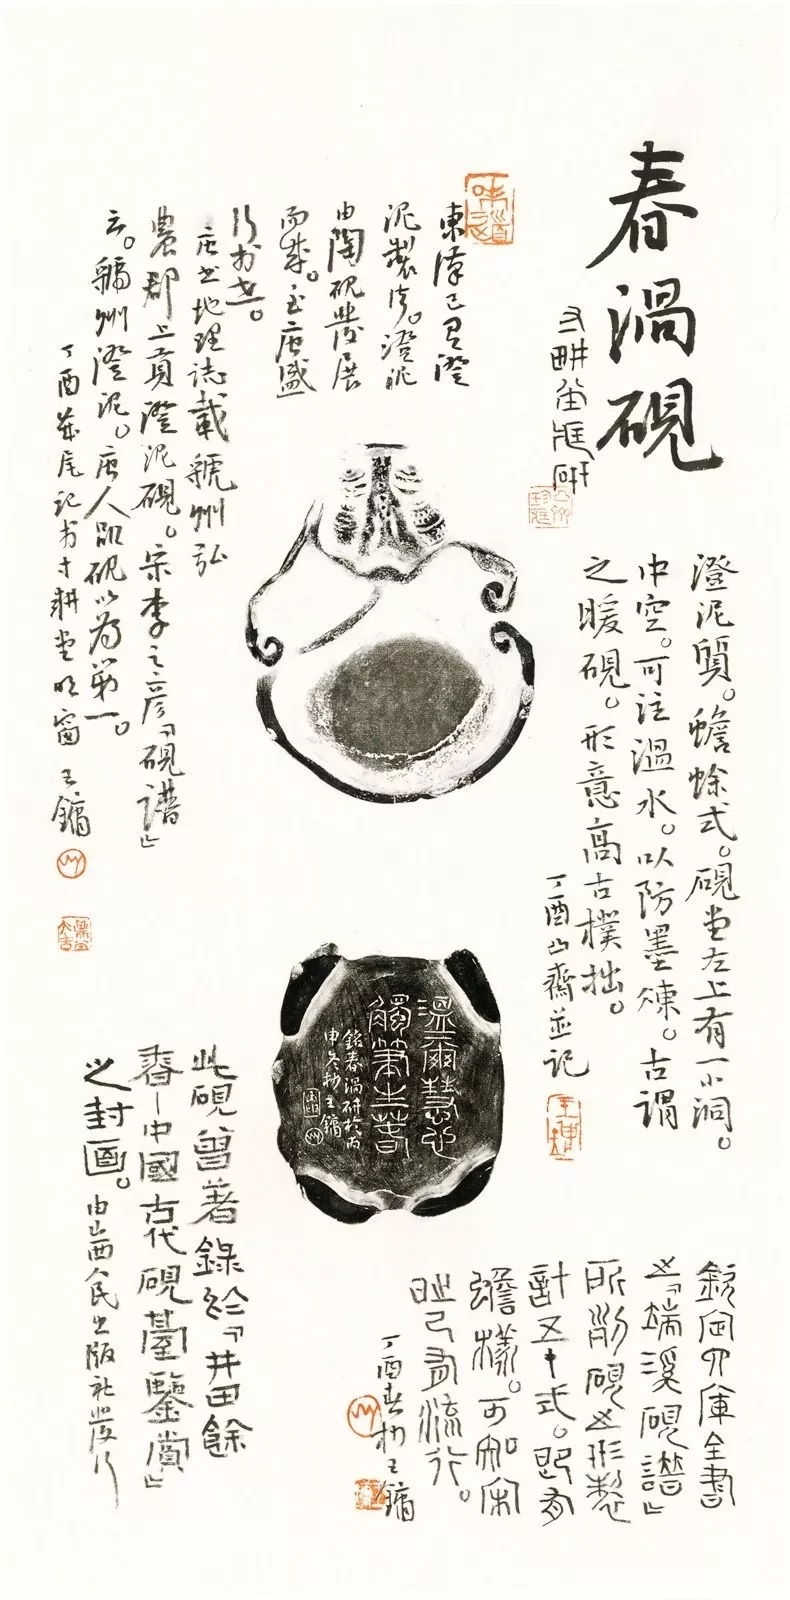 春渦硯
寸耕堂藏研
澄泥質。蟾蜍式。硯堂左上有一小洞。
中空。可注溫水。以防墨凍。古謂
之暖硯。形意高古樸拙。
丁酉山齋並記
東漢已有澄
泥製作。澄泥
由陶硯發展
而成。至唐盛
行於世。
唐書地理誌載虢州弘
農郡上貢澄泥硯。宋李之彥「硯譜」
云。虢州澄泥。唐人品硯以為第一。
丁酉歲尾記於寸耕堂明窗 王鏞
溫爾慧心
觸筆生華
銘春渦研於丙
申冬初王鏞
欽定四庫全書
之「端溪硯譜」
所列硯之形製
計五十式。即有
蟾樣。可知宋
時已有流行。
丁酉春初王鏞
此硯曾著錄於「井田餘
春—中國古代硯臺鑒賞」
之封面。由山西人民出版社發行